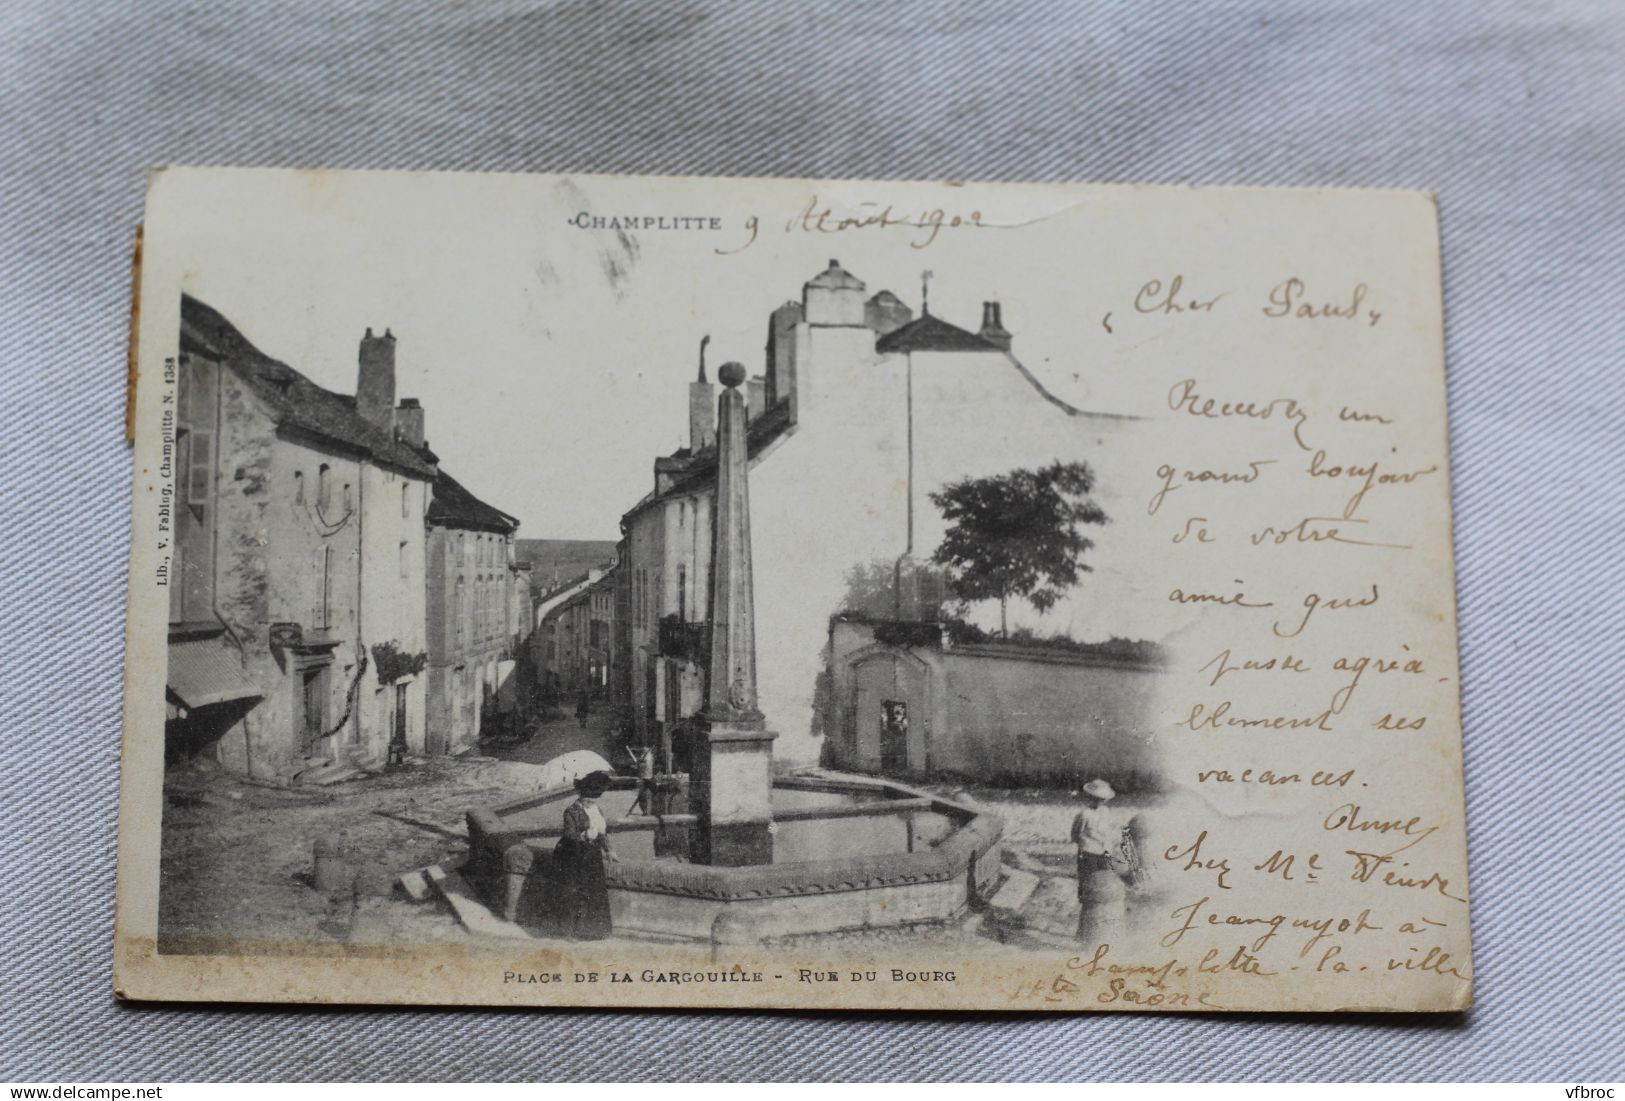 CHAMPLITTE 9 Août 1902
Cher Paul,
Recevez un
grand bonjour
de votre
amie qui
passe agréa-
blement ses
vacances.
Anne
chez Me Veuve
Jeanguyot à
Champlitte-la-ville
Hte Saône
Lib., V. Fabing, Champlitte N. 1388
PLACE DE LA GARGOUILLE - RUE DU BOURG
vfbroc